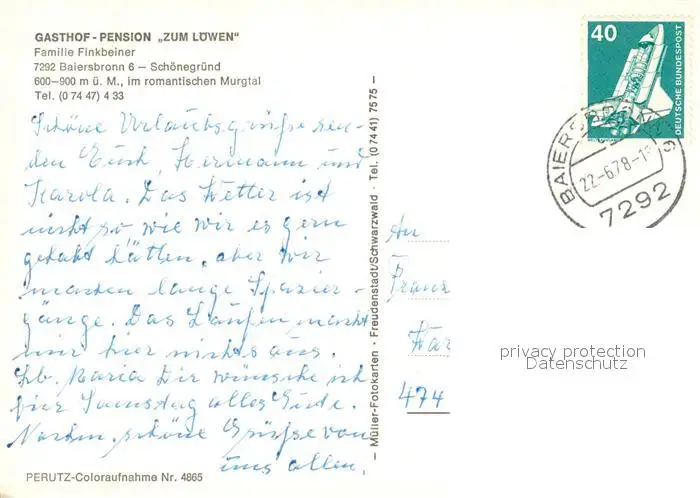 GASTHOF - PENSION „ZUM LÖWEN"
Familie Finkbeiner
7292 Baiersbronn 6 — Schönegründ
600–900 m ü. M., im romantischen Murgtal
Tel. (0 74 47) 4 33
Schöne Urlaubsgrüße sen-
den Euch, Hermann und
Karola. Das Wetter ist
nicht so wie wir es gern
gehabt hätten, aber wir
machen lange Spazier-
gänge. Das Laufen macht
mir hier nichts aus.
Lb. Maria Dir wünsche ich
für Samstag alles Gute.
Nochm. schöne Grüße von
uns allen.
PERUTZ-Coloraufnahme Nr. 4865
— Müller-Fotokarten · Freudenstadt/Schwarzwald · Tel. (0 74 41) 75 75 —
40
DEUTSCHE BUNDESPOST
22.-6.78-1
7292
An
Franz
474
privacy protection
Datenschutz